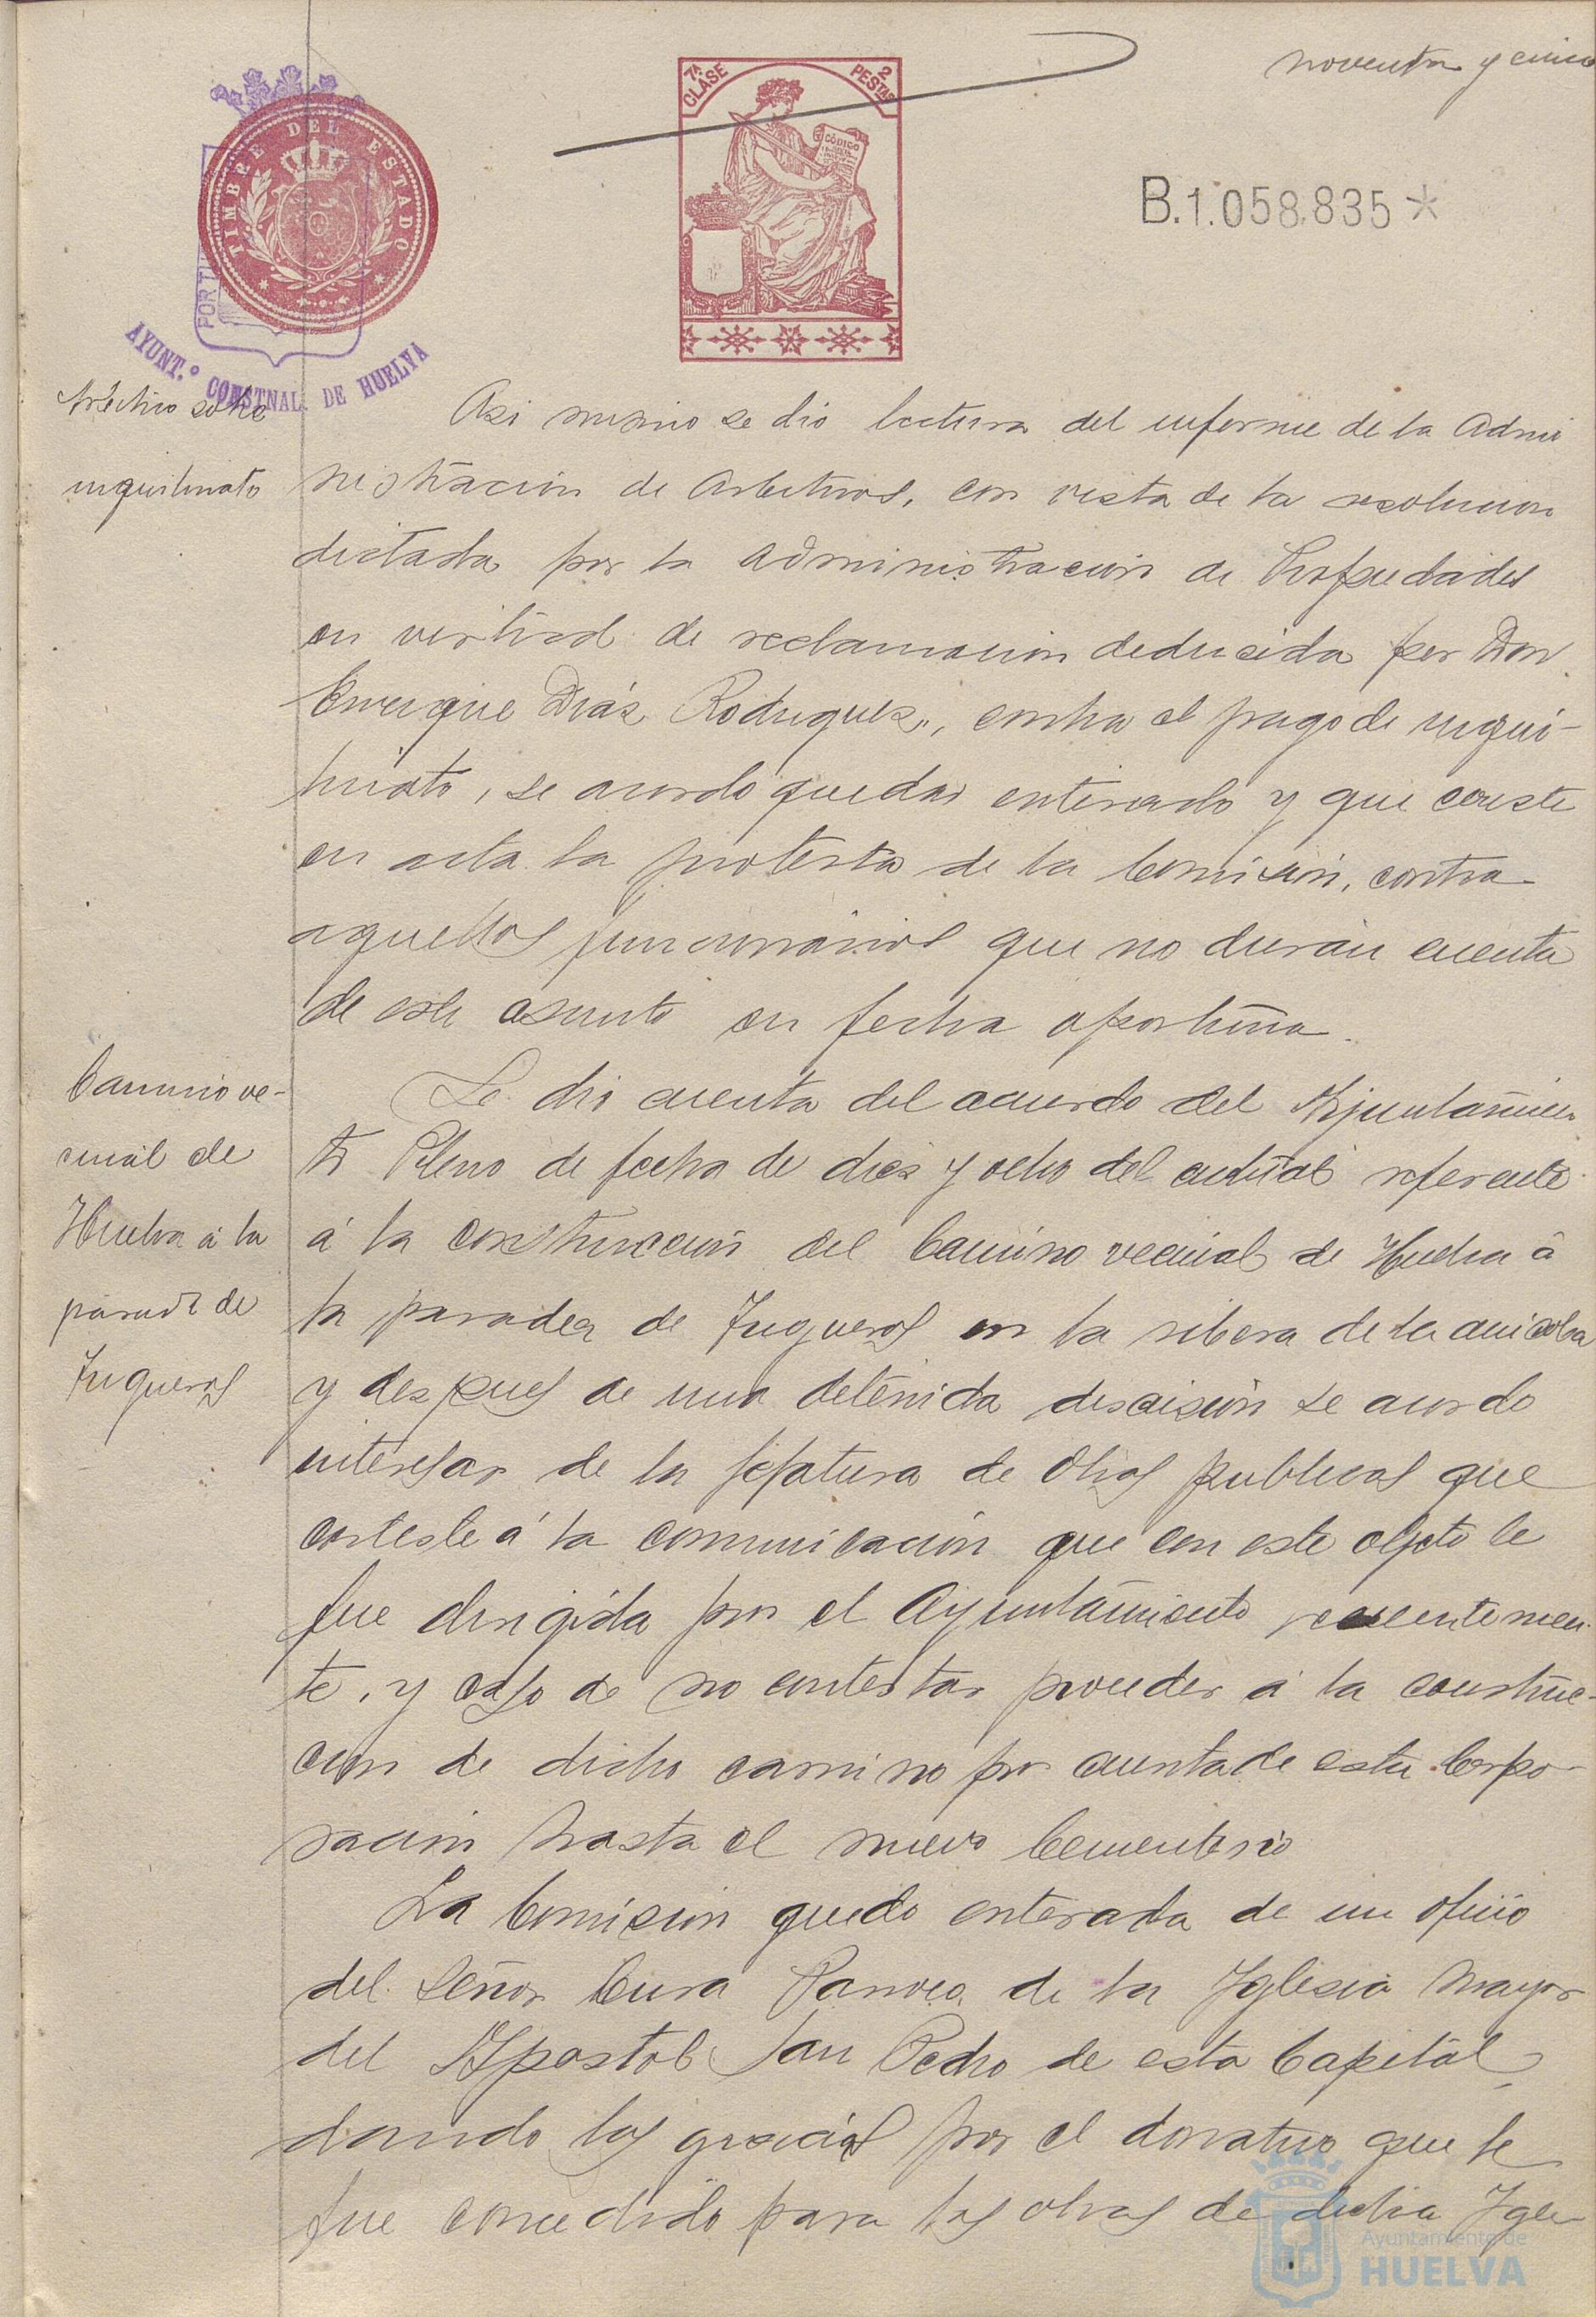 noventa y cinco
7ª CLASE
2 PESTAS
CÓDIGO
TIMBRE DEL ESTADO
B.1.058.835*
PORTU
AYUNT.º CONSTNAL. DE HUELVA
Arbitrio sobre
inquilinato
Asi mismo se dio lectura del informe de la Admi
nistracion de Arbitrios, con vista de la resolucion
dictada por la Administracion de Propiedades
en virtud de reclamacion deducida por Don
Enrique Diáz Rodriguez, contra el pago de inqui-
linato, se acordo quedar enterado y que conste
en acta la protesta de la Comision, contra
aquellos funcionarios que no dieran cuenta
de este asunto en fecha oportuna.
Camino ve-
cinal de
Huelva á la
parada de
Jugueros
Se dio cuenta del acuerdo del Ayuntamien
to Pleno de fecha de dies y ocho del actual referente
á la construccion del Camino vecinal de Huelva á
la parada de Jugueros en la ribera de la anicoba
y despues de una detenida discision se acordo
interesar de la Jefatura de Obras publicas que
conteste á la comunicacion que con este objeto le
fue dirigida por el Ayuntamiento recientemen-
te, y caso de no contestar proceder á la construc-
cion de dicho camino por cuenta de esta Corpo-
racion hasta el nuevo Cementerio
La Comision quedo enterada de un oficio
del Señor Cura Parroco de la Iglesia Mayor
del Apostol San Pedro de esta Capital
dando las gracias por el donativo que le
fue concedido para las obras de dicha Igle
Ayuntamiento de
HUELVA